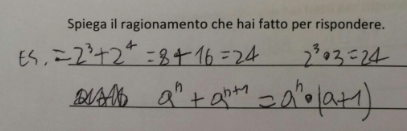 Spiega il ragionamento che hai fatto per rispondere.
ES. = 2³+2⁴ = 8+16 = 24 2³•3=24
aⁿ + aⁿ⁺¹ = aⁿ•(a+1)